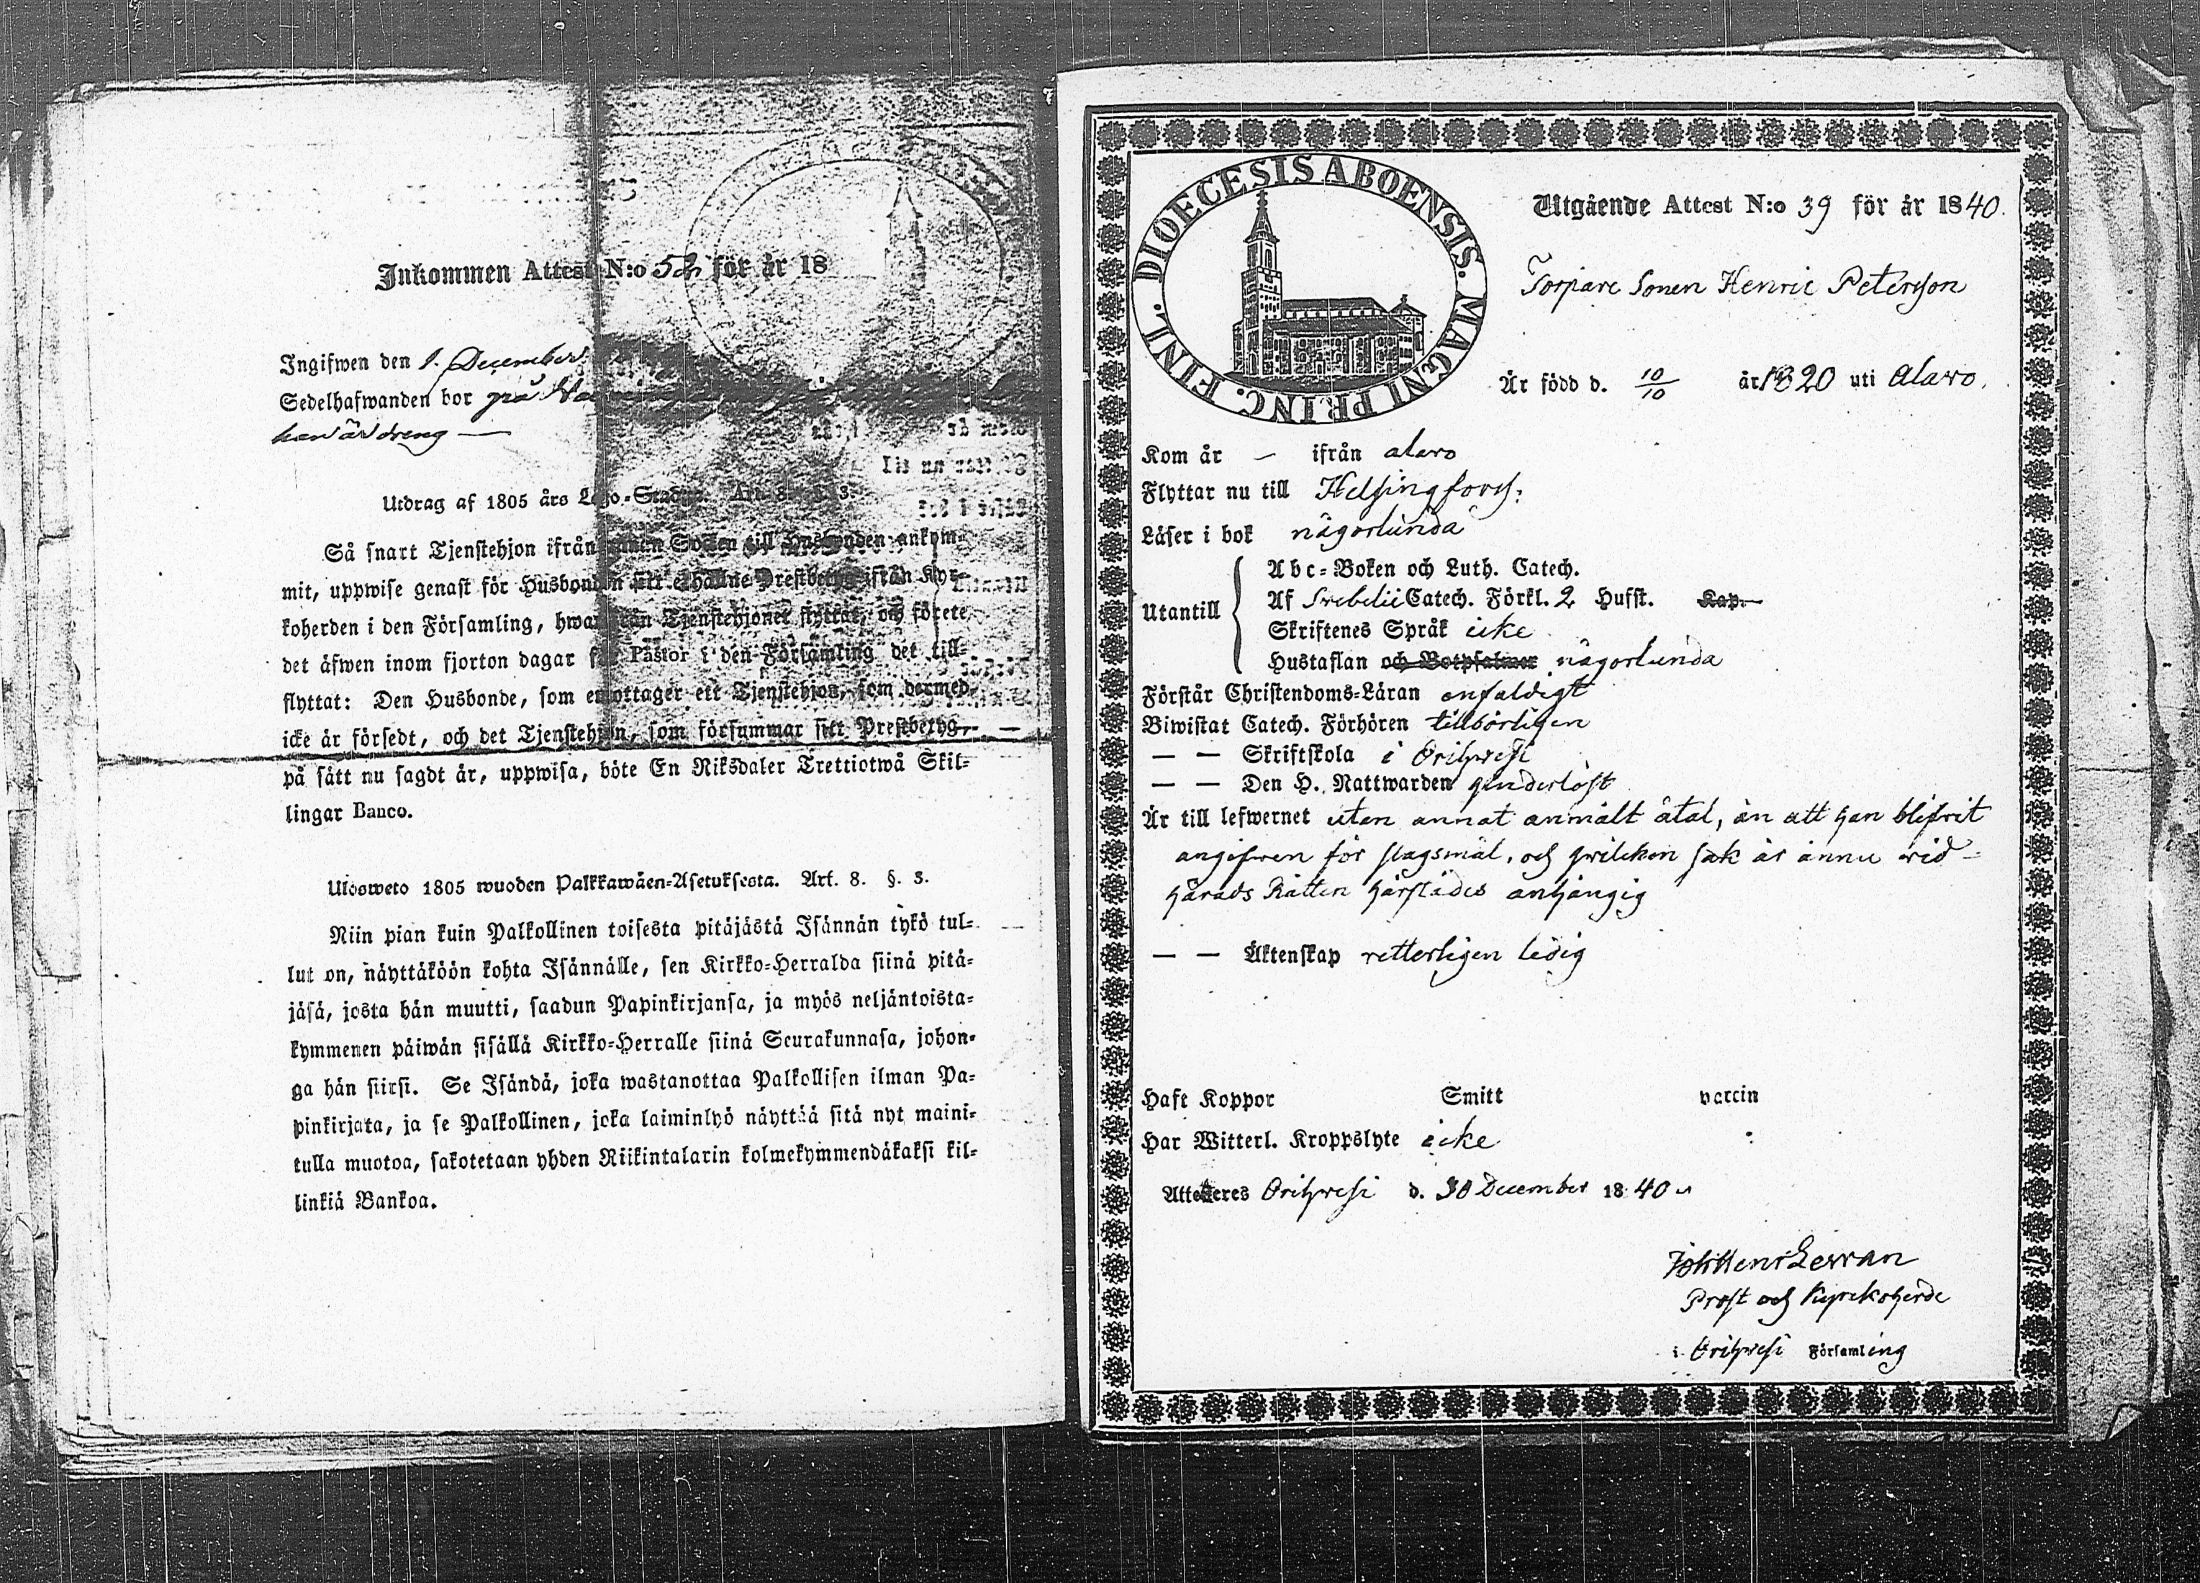 Inkommen Attest N:o för år 18
Ingifwen den 1. December
Sedelhafwanden bor på
han är dreng —
Utdrag af 1805 års Lego-Stadga. Art. 8. §. 3.
Så snart Tjenstehjon ifrån annan Socken till Husbonden ankom-
mit, uppwise genast för Husbonden sitt erhållne Prestbetyg ifrån Kyr-
koherden i den Församling, hwarifrån Tjenstehjonet flyttat, och förete
det äfwen inom fjorton dagar för Pastor i den Församling det till-
flyttat: Den Husbonde, som emottager ett Tjenstehjon, som dermed
icke är försedt, och det Tjenstehjon, som försummar sitt Prestbetyg,
på sätt nu sagdt är, uppwisa, böte En Riksdaler Trettiotwå Skil-
lingar Banco.
Ulosweto 1805 wuoden Palkkawäen-Asetuksesta. Art. 8. §. 3.
Niin pian kuin Palkollinen toisesta pitäjästä Isännän tykö tul-
lut on, näyttäköön kohta Isännälle, sen Kirkko-Herralda siinä pitä-
jäsä, josta hän muutti, saadun Papinkirjansa, ja myös neljäntoista-
kymmenen päiwän sisällä Kirkko-Herralle siinä Seurakunnasa, johon-
ga hän siirsi. Se Isändä, joka wastanottaa Palkollisen ilman Pa-
pinkirjata, ja se Palkollinen, joka laiminlyö näyttää sitä nyt maini-
tulla muotoa, sakotetaan yhden Riikintalarin kolmekymmendäkaksi kil-
linkiä Bankoa.
DIOECESIS ABOENSIS. MAGNI PRINC. FINL.
Utgående Attest N:o 39 för år 1840.
Torpare Sonen Henric Peterson
Är född d. 10/10 år 1820 uti Alavo.
Kom år — ifrån alavo
Flyttar nu till Helsingfors:
Läser i bok någorlunda
Abc-Boken och Luth. Catech.
Utantill Af Svebelii Catech. Förkl. 2 Hufst. Kap.
Skriftenes Språk icke
Hustaflan och Botpsalmer någorlunda
Förstår Christendoms-Läran enfaldigt
Biwistat Catech. Förhören tillbörligen
— — Skriftskola i Orihvesi
— — Den H. Nattwarden hinderlöst
Är till lefwernet utan annat anmält åtal, än att han blifvit
angifwen för slagsmål, och hvilken sak är ännu vid
härads Rätten härstädes anhängig
— — Äktenskap retterligen ledig
Haft Koppor Smitt vaccin
Har Witterl. Kroppslyte icke
Attesteres Orihvesi d. 30 December 1840
Joh Henr Levvan
Prost och Kyrckoherde
i Orihvesi Församling